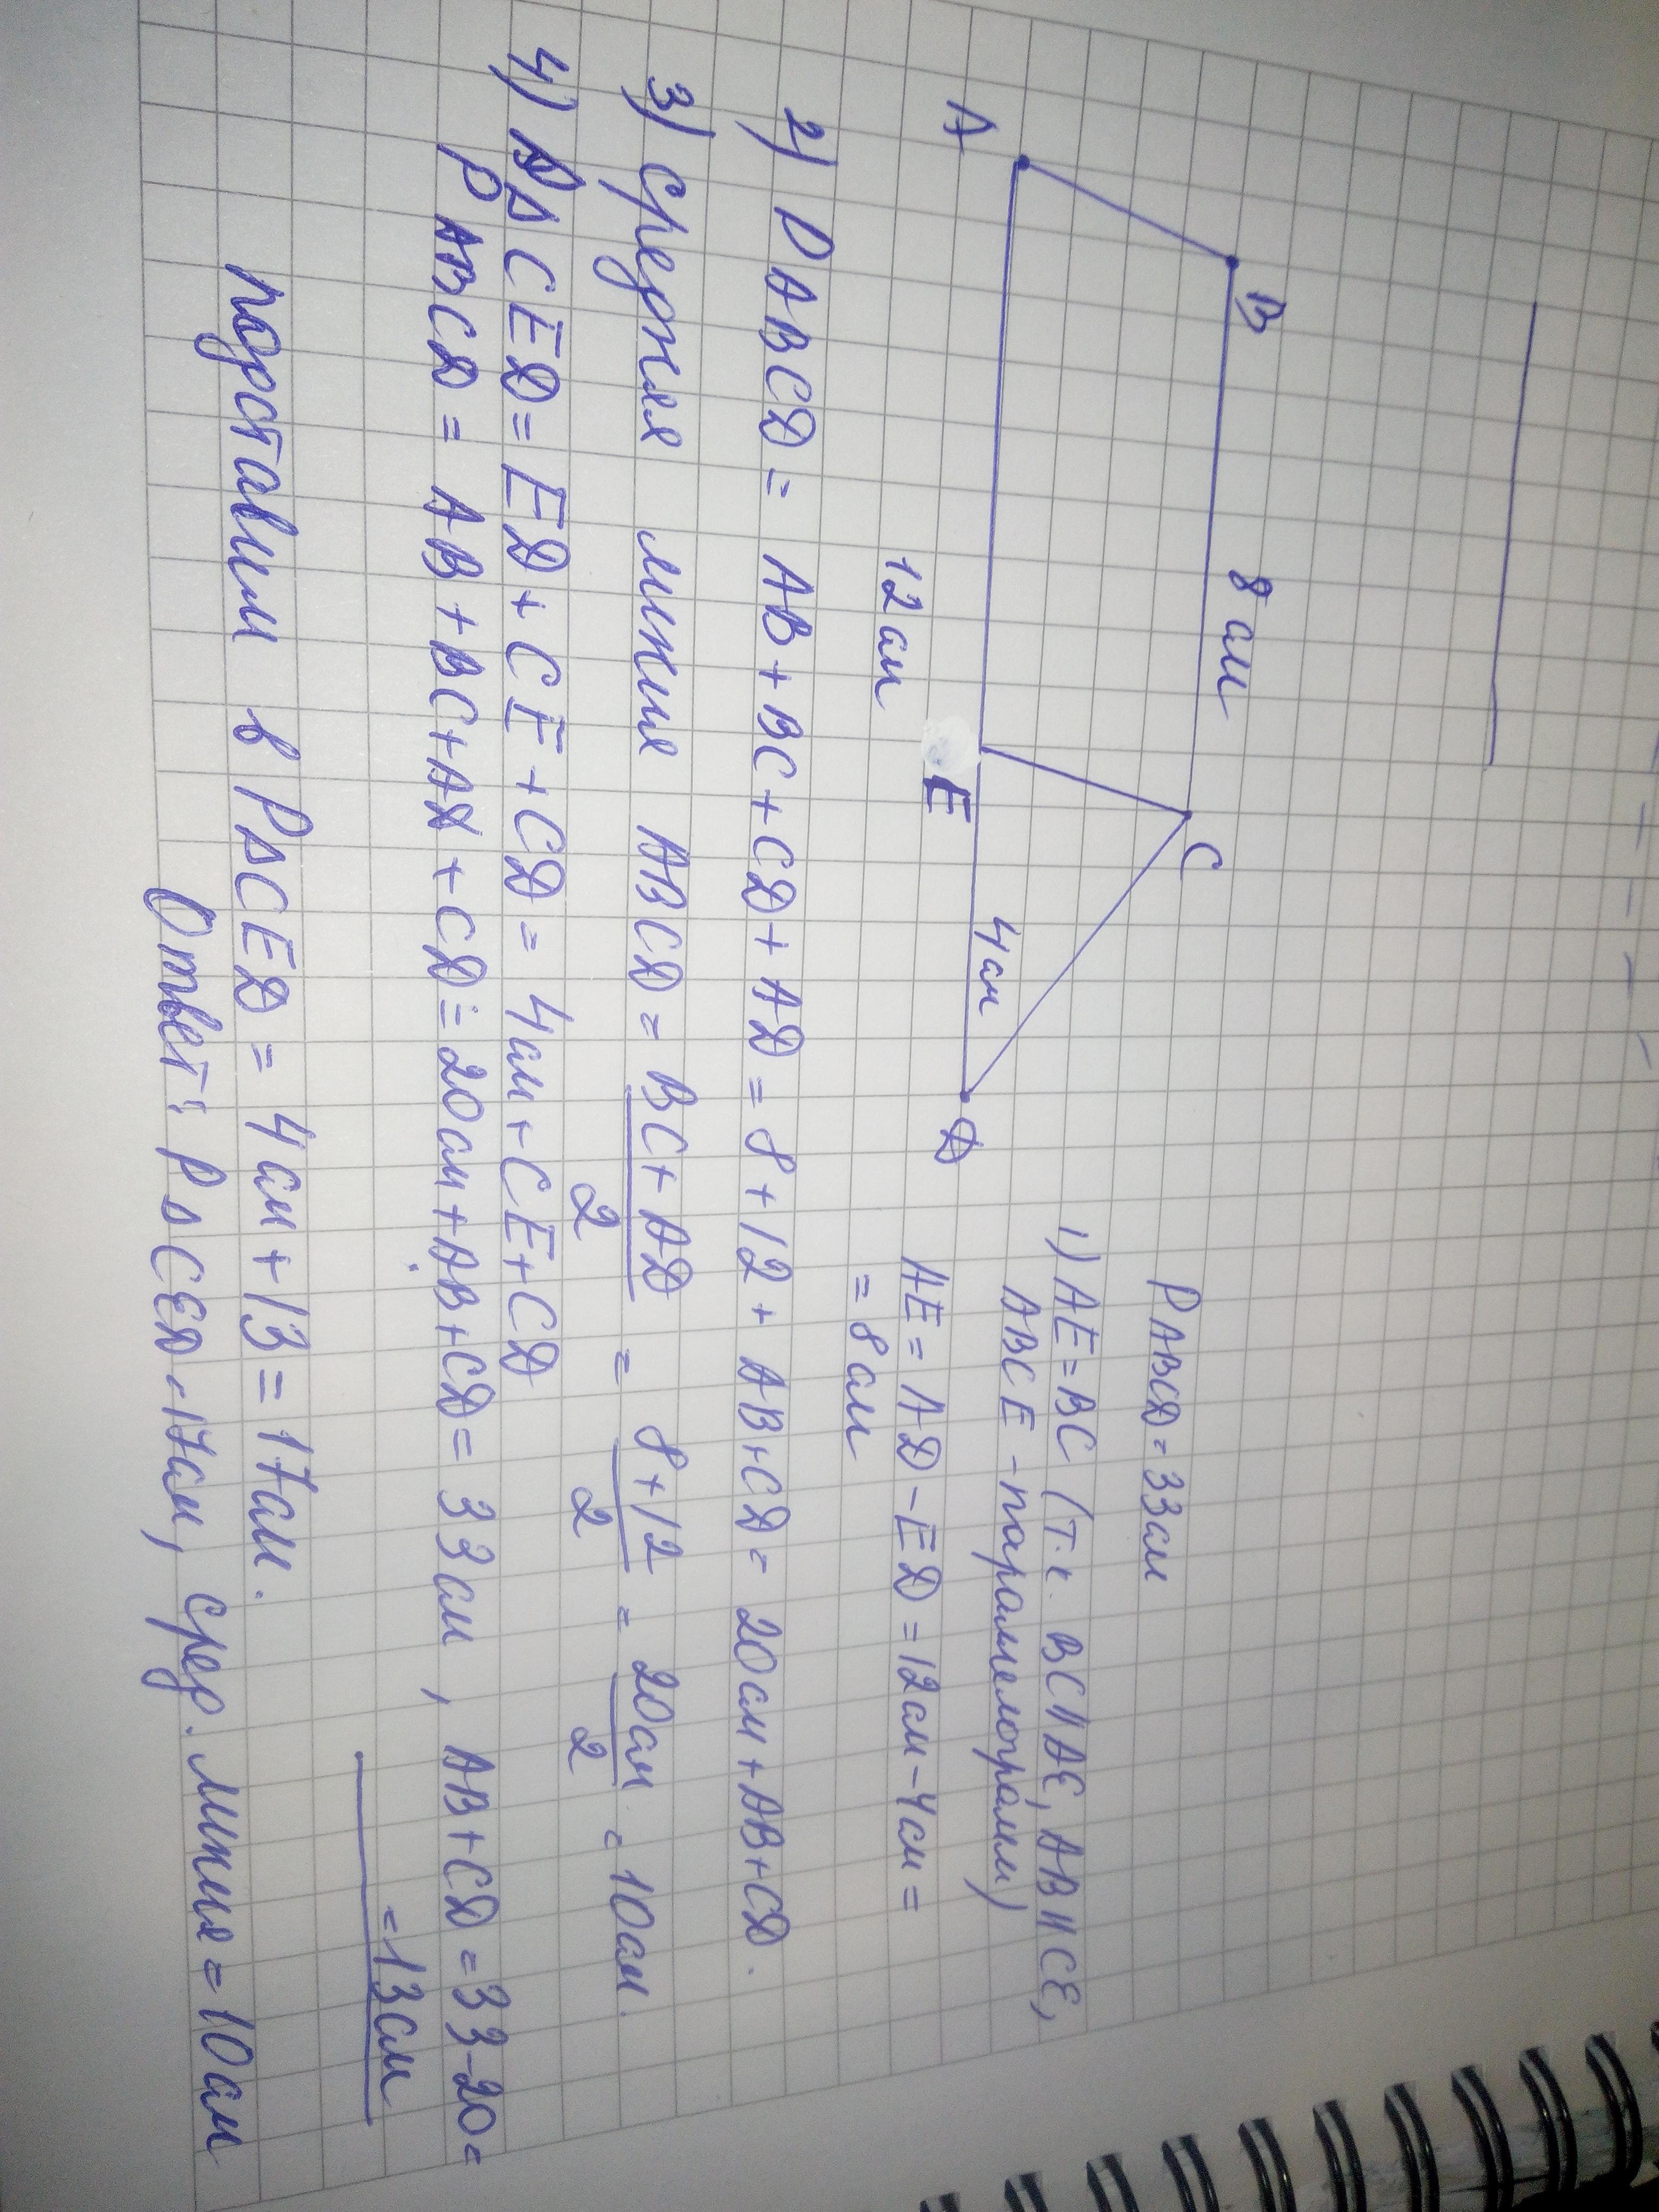 B
8 см
C
A
12 см
E
4 см
D
P ABCD = 33 см
1) AE = BC (т.к. BC || AE, AB || CE,
ABCE - параллелограмм)
AE = AD - ED = 12 см - 4 см =
= 8 см
2) P ABCD = AB + BC + CD + AD = 8 + 12 + AB + CD = 20 см + AB + CD.
3) средняя линия ABCD = BC + AD / 2 = 8 + 12 / 2 = 20 см / 2 = 10 см.
4) P△CED = ED + CE + CD = 4 см + CE + CD
P ABCD = AB + BC + AD + CD = 20 см + AB + CD = 33 см, AB + CD = 33 - 20 =
= 13 см
подставим в P△CED = 4 см + 13 = 17 см.
Ответ: P△CED = 17 см, сред. линия = 10 см